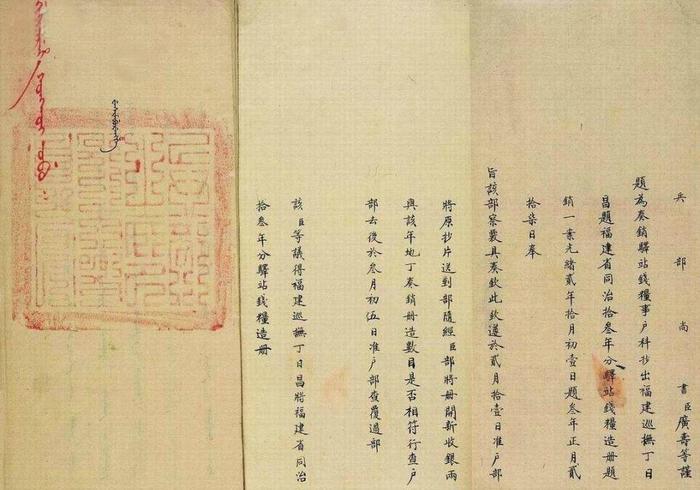 兵部尚書臣廣壽等謹
題為奏銷驛站錢糧事户科抄出福建巡撫丁日
昌題福建省同治拾叁年分驛站錢糧造册題
銷一案光緒貳年拾月初壹日題叁年正月貳
拾柒日奉
旨該部察覈具奏欽此欽遵於貳月拾壹日准户部
將原抄片送到部隨經臣部將册開新收銀兩
與該年地丁奏銷册造數目是否相符行查户
部去後於叁月初伍日准户部查覆過部
該臣等議得福建巡撫丁日昌將福建省同治
拾叁年分驛站錢糧造册